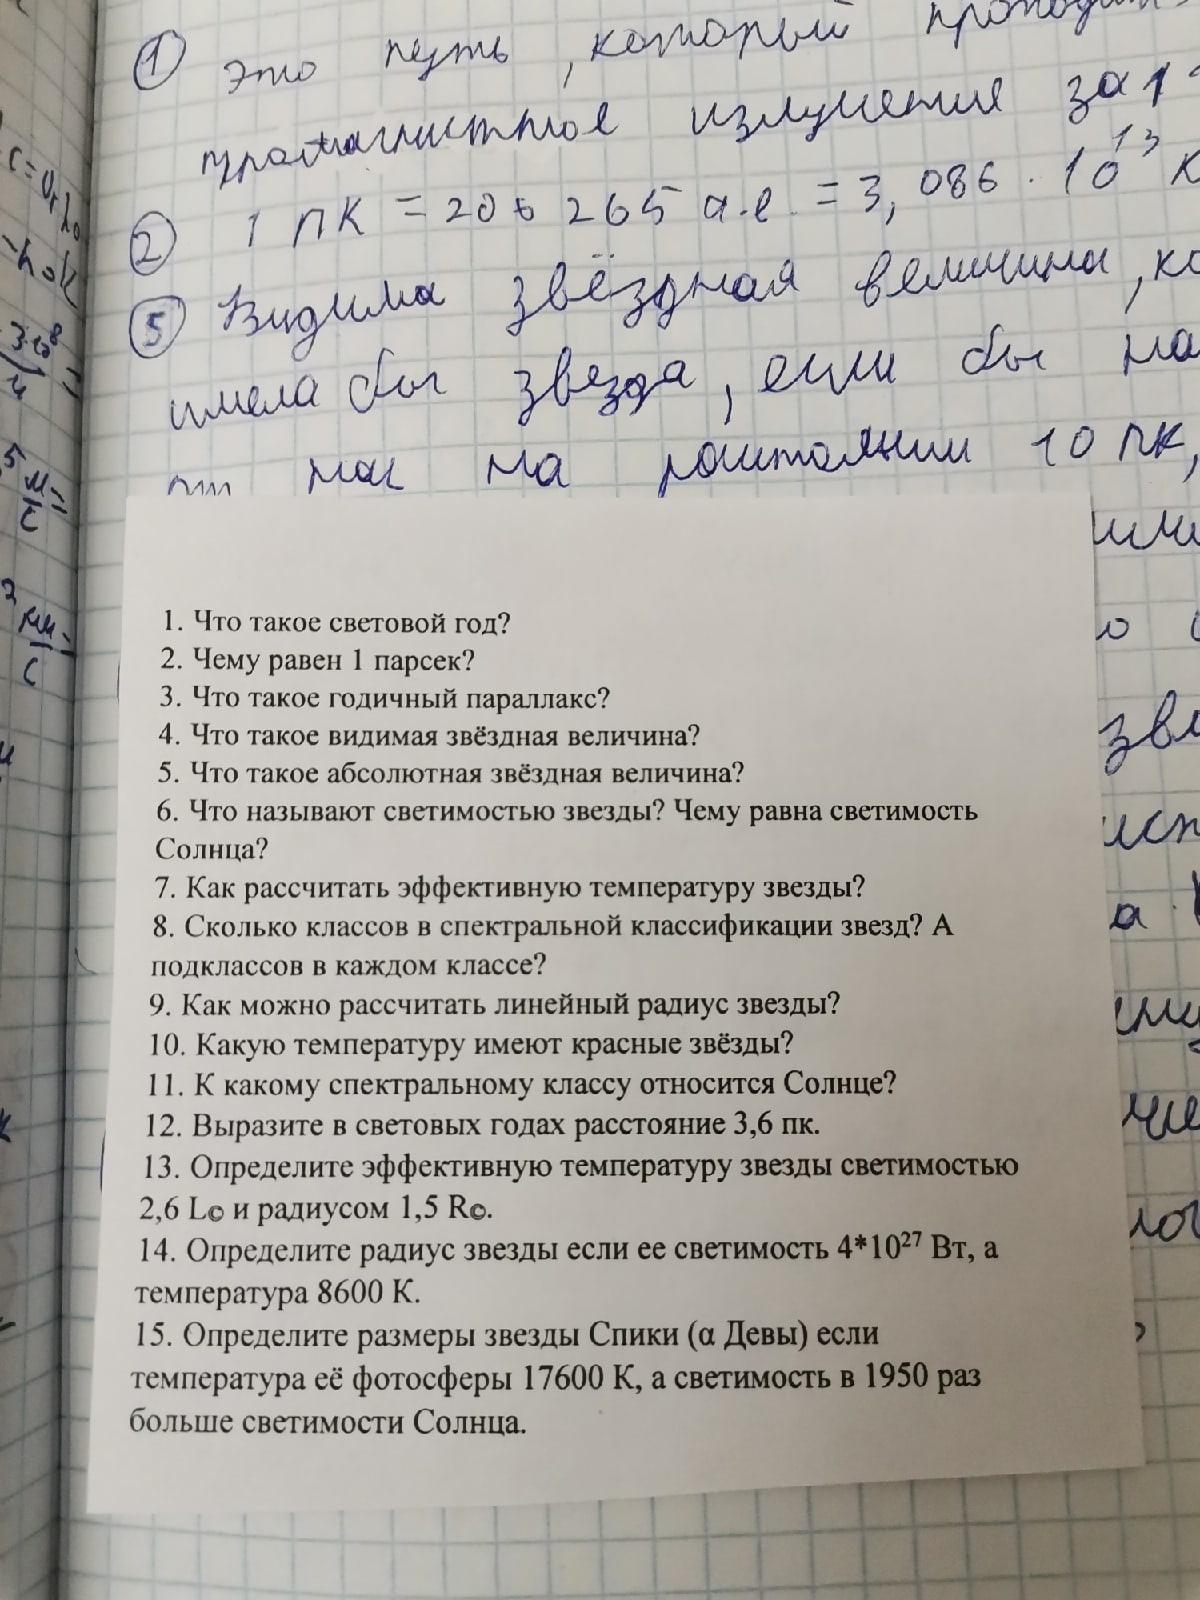 ① Это путь, который проходит
излучение за 1
② 1 пк = 206 265 а.е. = 3,086 · 10¹³ к
⑤ Видима звёздная величина, ко
имела бы звезда, если бы на
от нас на расстоянии 10 пк,
1. Что такое световой год?
2. Чему равен 1 парсек?
3. Что такое годичный параллакс?
4. Что такое видимая звёздная величина?
5. Что такое абсолютная звёздная величина?
6. Что называют светимостью звезды? Чему равна светимость
Солнца?
7. Как рассчитать эффективную температуру звезды?
8. Сколько классов в спектральной классификации звезд? А
подклассов в каждом классе?
9. Как можно рассчитать линейный радиус звезды?
10. Какую температуру имеют красные звёзды?
11. К какому спектральному классу относится Солнце?
12. Выразите в световых годах расстояние 3,6 пк.
13. Определите эффективную температуру звезды светимостью
2,6 L© и радиусом 1,5 R©.
14. Определите радиус звезды если ее светимость 4*10²⁷ Вт, а
температура 8600 К.
15. Определите размеры звезды Спики (α Девы) если
температура её фотосферы 17600 К, а светимость в 1950 раз
больше светимости Солнца.